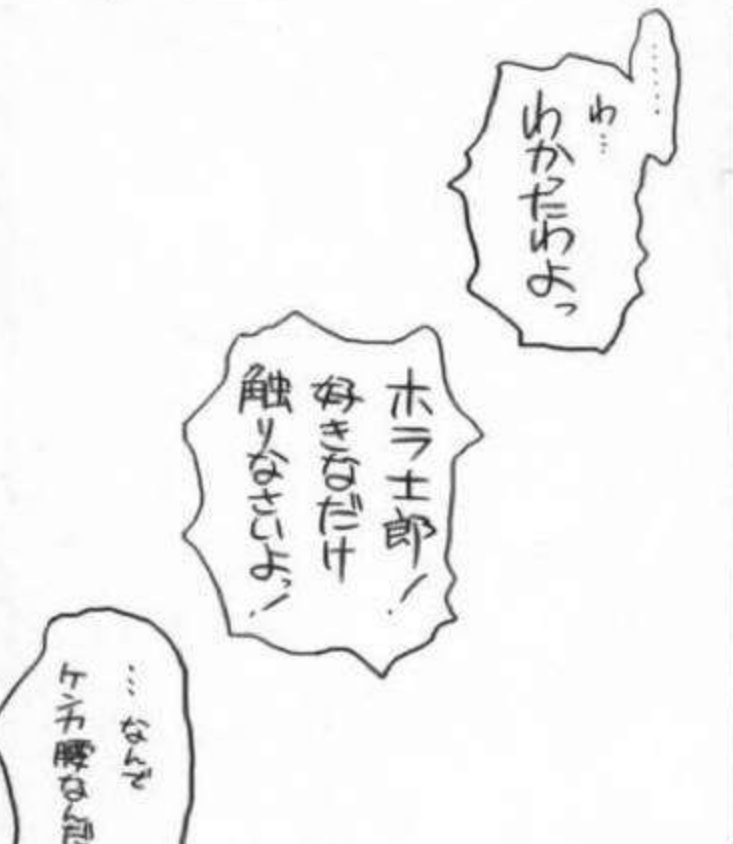 ……
わ…
わかったわよっ
ホラ士郎！
好きなだけ
触りなさいよっ！
…なんで
ケンカ腰なんだ